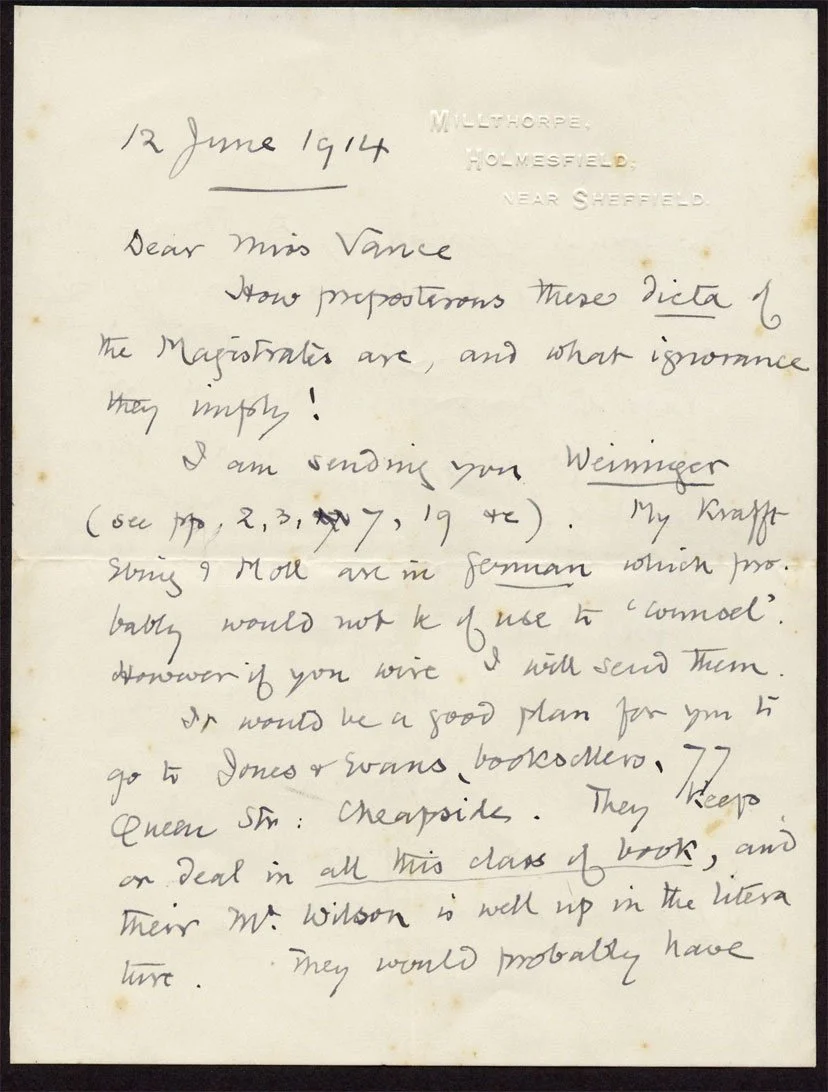 12 June 1914
MILLTHORPE,
HOLMESFIELD,
NEAR SHEFFIELD.
Dear Miss Vance
How preposterous these dicta of
the Magistrates are, and what ignorance
they imply!
I am sending you Weininger
(see pp. 2, 3, 7, 19 &c). My Krafft
Ebing & Moll are in German which pro-
bably would not be of use to 'counsel'.
However if you wire I will send them.
It would be a good plan for you to
go to Jones & Evans, booksellers, 77
Queen Str: Cheapside. They keep
or deal in all this class of book, and
their Mr. Wilson is well up in the litera
ture. They would probably have